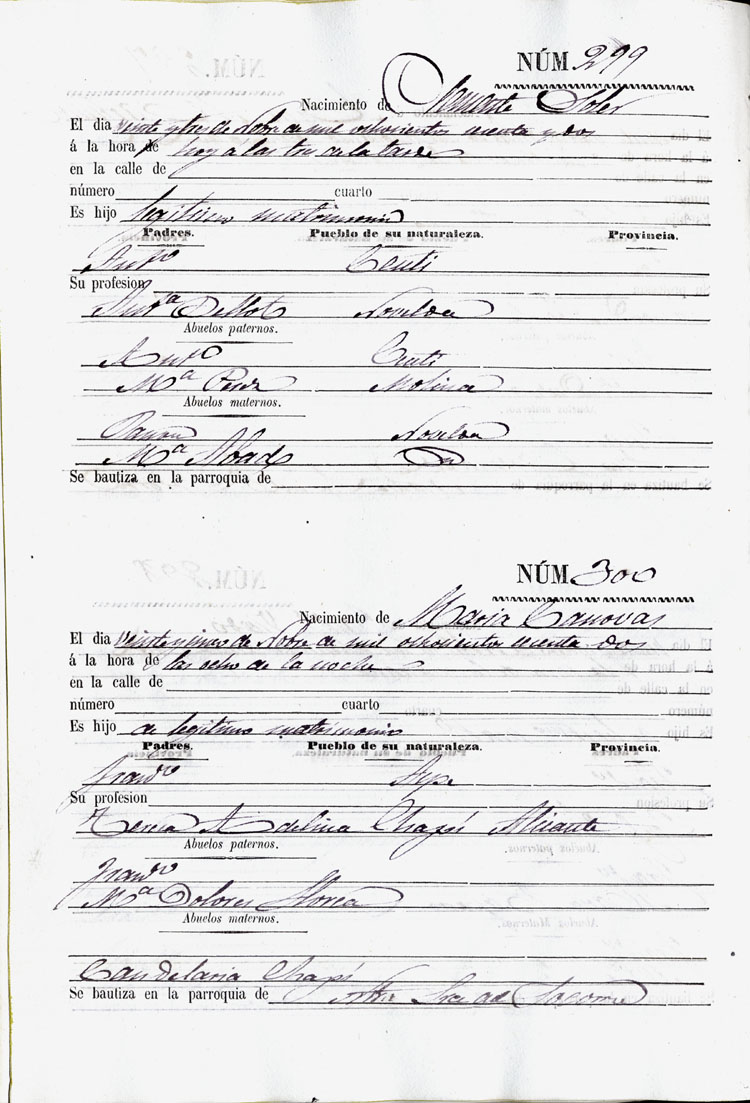 NÚM. 299
Nacimiento de Clemente Soler
El dia veinte y tres de Nobre de mil ochocientos secenta y dos
á la hora de hoy á las tres de la tarde
en la calle de
número cuarto
Es hijo legitimo matrimonio
Padres. Pueblo de su naturaleza. Provincia.
Anto Ceuti
Su profesion
Anta Novelda
Abuelos paternos.
Anto Ceuti
Ma Molina
Abuelos maternos.
Ramon Novelda
Ma Abad
Se bautiza en la parroquia de
NÚM. 300
Nacimiento de Maria Canovas
El dia veinte y cinco de Nobre de mil ochocientos secenta dos
á la hora de las ocho de la noche
en la calle de
número cuarto
Es hijo de legitimo matrimonio
Padres. Pueblo de su naturaleza. Provincia.
Franco Aspe
Su profesion
Teresa Adelina Chapí Alicante
Abuelos paternos.
Franco
Ma Dolores
Abuelos maternos.
Candelaria Chapí
Se bautiza en la parroquia de Ntra Sra del Socorro